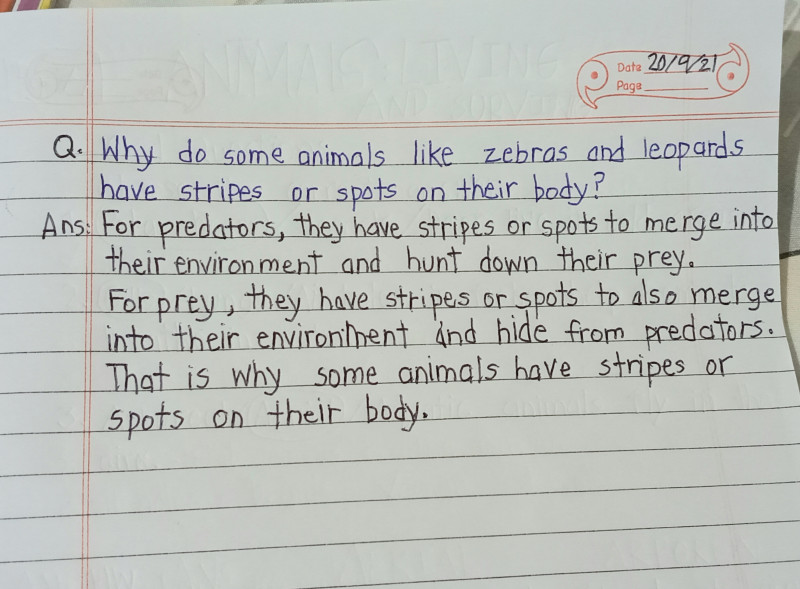 Date 20/9/21
Page
Q. Why do some animals like zebras and leopards
have stripes or spots on their body?
Ans: For predators, they have stripes or spots to merge into
their environment and hunt down their prey.
For prey, they have stripes or spots to also merge
into their environment and hide from predators.
That is why some animals have stripes or
spots on their body.